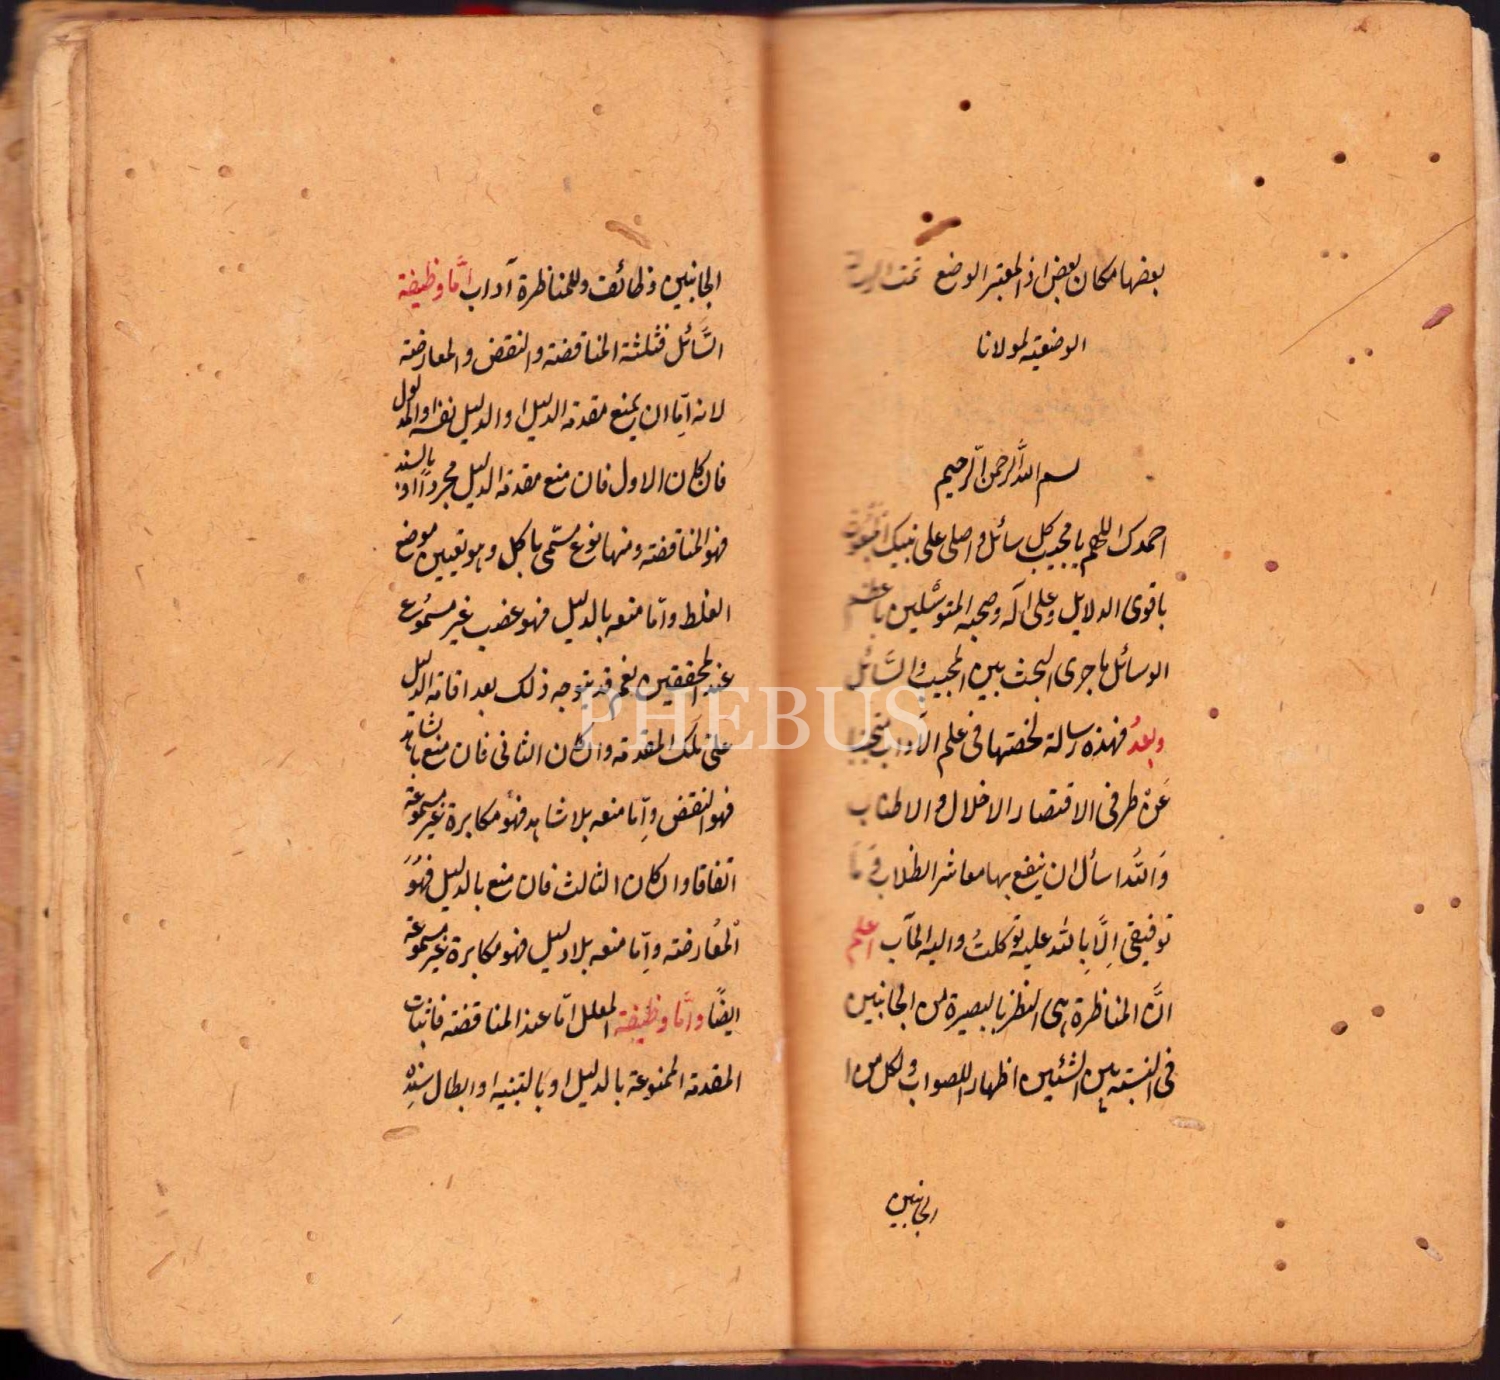 بعضها مكان بعض اذ المعتبر الوضع تمت الرسالة
الوضعية لمولانا
بسم الله الرحمن الرحيم
احمدك اللهم يا مجيب كل سائل واصلى على نبيك المبعوث
باقوى الدلايل وعلى اله وصحبه المتوسلين باعظم
الوسائل ما جرى البحث بين المجيب والسائل
وبعد فهذه رسالة لخصتها فى علم الآداب متجنبا
عن طرفى الاقتصار الاخلال والاطناب
والله اسأل ان ينفع بها معاشر الطلاب وما
توفيقى الا بالله عليه توكلت واليه المآب اعلم
ان المناظرة هى النظر بالبصيرة من الجانبين
فى النسبة بين الشئين اظهارا للصواب ولكل من
الجانبين
الجانبين وظائف وللمناظرة آداب اما وظيفة
السائل فثلثة المناقضة والنقض والمعارضة
لانه اما ان يمنع مقدمة الدليل او الدليل نفسه او المدلول
فان كان الاول فان منع مقدمة الدليل مجردا او بالسند
فهو المناقضة ومنها نوع مسمى بالحل وهو تعيين موضع
الغلط واما منعه بالدليل فهو غصب غير مسموع
عند المحققين نعم قد يتوجه ذلك بعد اقامة الدليل
على تلك المقدمة وان كان الثانى فان منع بالشاهد
فهو النقض واما منعه بلا شاهد فهو مكابرة غير مسموعة
اتفاقا وان كان الثالث فان منع بالدليل فهو
المعارضة واما منعه بلا دليل فهو مكابرة غير مسموعة
ايضا واما وظيفة المعلل اما عند المناقضة فاثبات
المقدمة الممنوعة بالدليل او بالتنبيه او ابطال سنده
PHEBUS